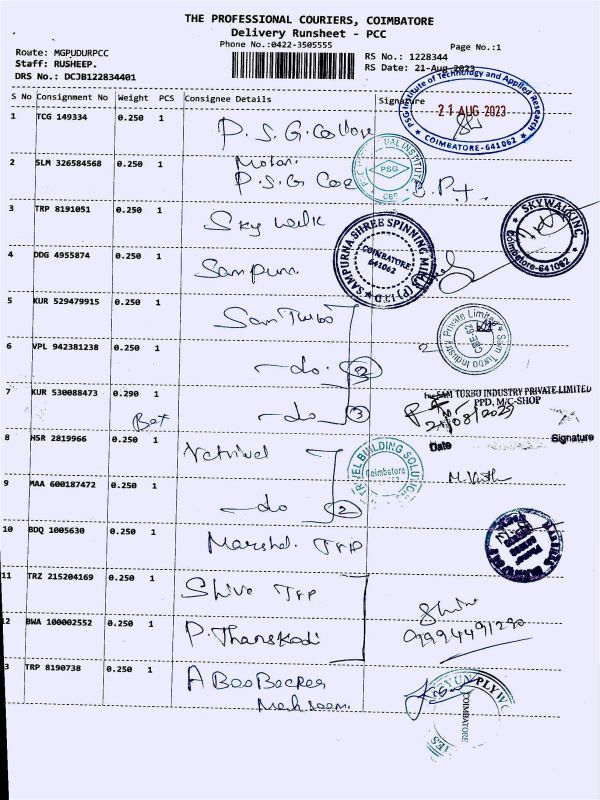 THE PROFESSIONAL COURIERS, COIMBATORE
Delivery Runsheet - PCC
Phone No.:0422-3505555
Page No.:1
Route: MGPUDURPCC
RS No.: 1228344
Staff: RUSHEEP.
RS Date: 21-Aug-2023
DRS No.: DCJB122834401
S No Consignment No Weight PCS Consignee Details Signature
PSG Institute of Technology and Applied Research
21 AUG 2023
COIMBATORE-641062
1 TCG 149334 0.250 1 P.S.G. College
2 SLM 326584568 0.250 1
P.S.G
PSG
CBE
3 TRP 8191051 0.250 1 Sky walk
SKYWALKING
Coimbatore-641062
4 DDG 4955874 0.250 1 Sampurna
SAMPURNA SHREE SPINNING MILLS (P) LTD
COIMBATORE
641062
5 KUR 529479915 0.250 1 Sam Turbo
Sam Turbo Industry Private Limited
6 VPL 942381238 0.250 1 -do.
7 KUR 530088473 0.290 1 -do 3
SAM TURBO INDUSTRY PRIVATE LIMITED
PPD, M/C-SHOP
21/08/2023
Date Signature
8 HSR 2819966 0.250 1 Vetrivel
BUILDING SOLUTIONS
Coimbatore
9 MAA 600187472 0.250 1 -do 2
10 BDQ 1005630 0.250 1 Marshal
11 TRZ 215204169 0.250 1 Shiva
12 BWA 100002552 0.250 1 P. Thanskodi
3 TRP 8190738 0.250 1 A Boo Backer
PLYWO
COIMBATORE